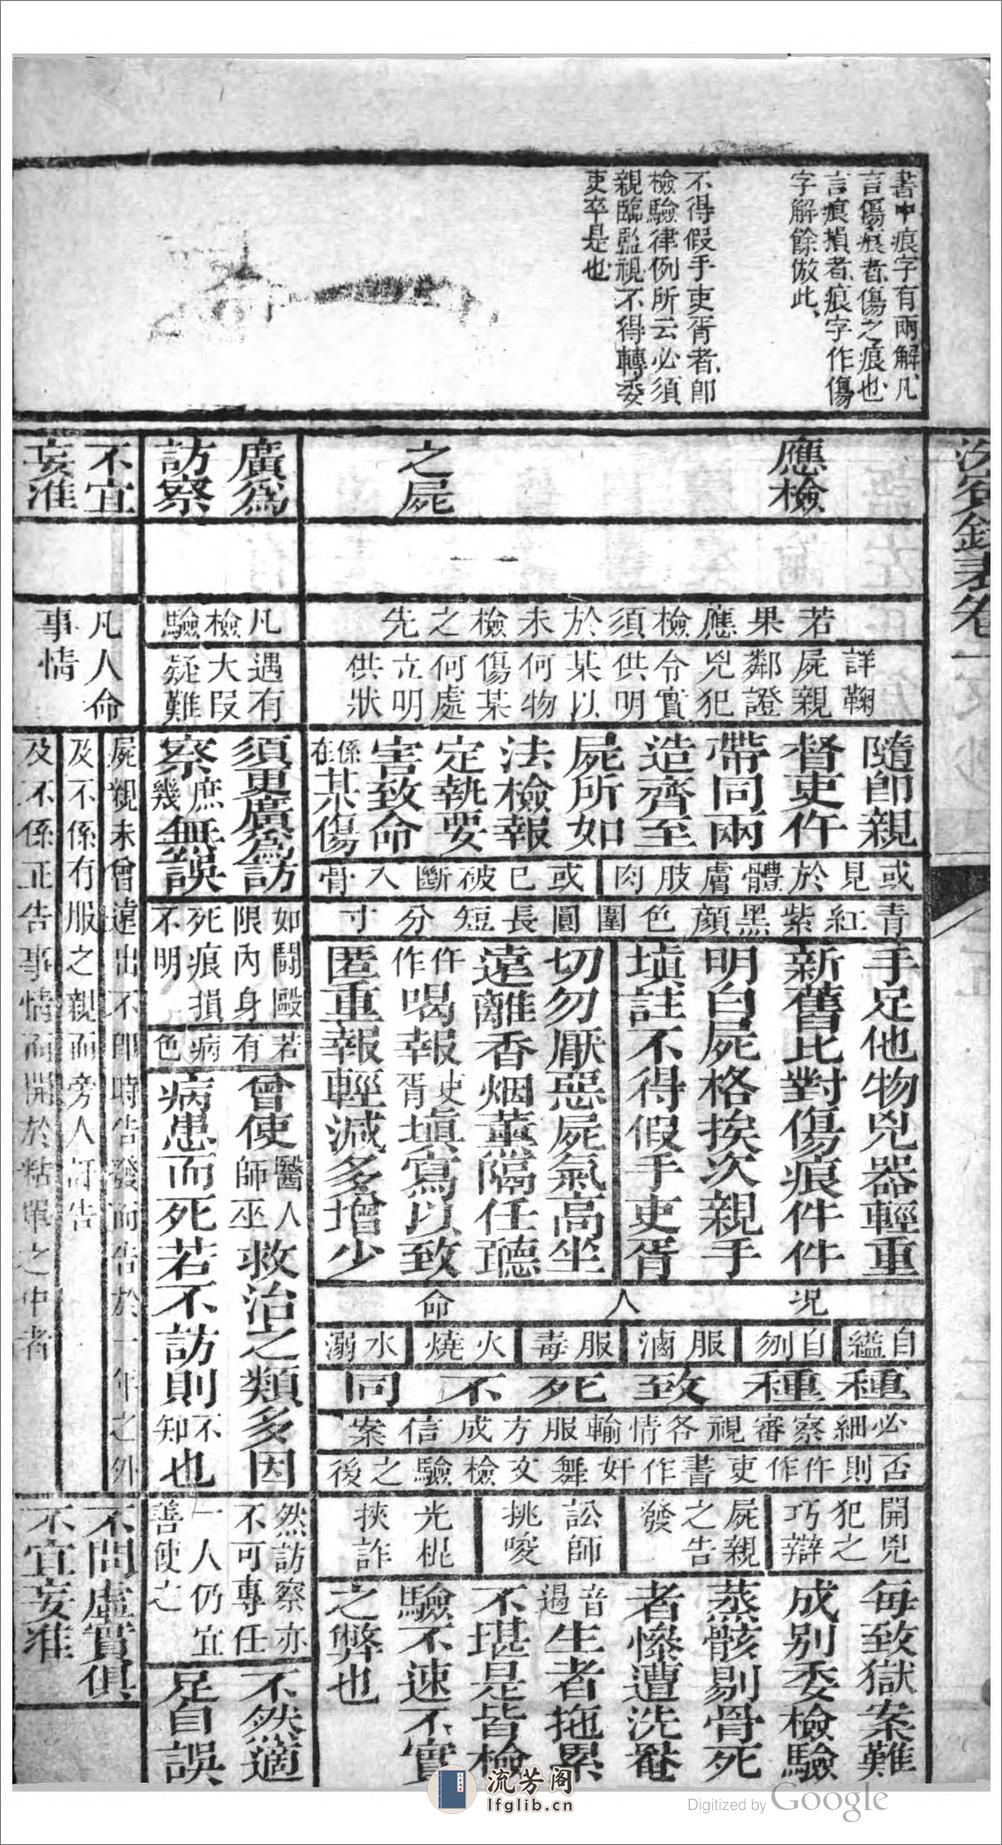 書中痕字有兩解凡
言傷痕者傷之痕也
言痕損者痕字作傷
字解餘倣此
不得假手吏胥者即
檢驗律例所云必須
親臨監視不得轉委
吏卒是也
應檢
之屍
若果應檢須於未檢之先
詳鞠
屍親
鄰證
兇犯
令實
供明
某以
何物
傷某
何處
立明
供狀
隨即親
督吏仵
帶同兩
造齊至
屍所如
法檢報
定執要
害致命
係在某傷
或見於體膚肢肉
或已破斷入骨
青紅紫黑顏色圍圓長短分寸
手足他物兇器輕重
新舊比對傷痕件件
明白屍格挨次親手
填註不得假手吏胥
切勿厭惡屍氣高坐
遠離香烟薰隔任聽
仵作喝報吏胥填寫以致
匿重報輕減多增少
況人命
自縊
自刎
服滷
服毒
火燒
水溺
種種致死不同
必細察審視各情輸服方成信案
否則仵作吏書作奸舞文檢驗之後
開兇
犯之
巧辯
屍親
之告
發
訟師
挑唆
光棍
挾詐
每致獄案難
成別委檢驗
蒸骸剔骨死
者慘遭洗罨
音過生者拖累
不堪是皆檢
驗不速不實
之弊也
廣為
訪察
凡檢驗
遇有
大段
疑難
須更廣為訪
察庶幾無誤
如鬪毆
限內身
死痕損
不明
若有病色
曾使醫人師巫救治之類多因
病患而死若不訪則不知也
然訪察亦
不可專任
一人仍宜
善使之
不然適
足自誤
不宜
妄准
凡人命
事情
屍親未曾遠出不即時告發而告於一年之外
及不係有服之親而旁人訐告
及不係正告事情而開於粘單之中者
不問虛實俱
不宜妄准
流芳阁
lfglib.cn
Digitized by Google